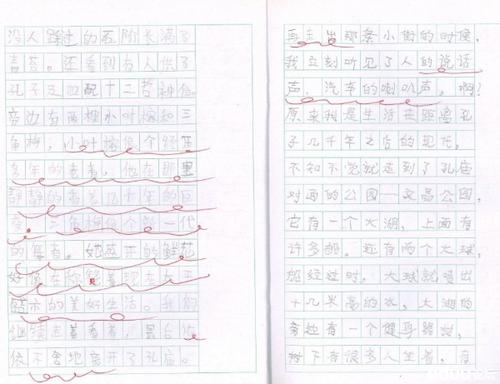 没人踩过的石阶长满了
青苔。还看到有人供了
孔子及四配十二哲神位
旁边有两棵小叶榕和三
角梅，小叶榕像个经
多年的老者，他在那里
静静的看着几千年的历
三角梅像个新一代
的 者。她盛开的鲜花
好像在 着现在
的美好生活。我们
继续走着看着，
依不舍地离开了孔庙。
再走出那条小街的时候，
我立刻听见了人的说话
声，汽车的喇叭声。啊？
原来我是生活在距离孔
子几千年之后的现代。
不知不觉就走到了孔庙
对面的公园—文昌公园，
它有一个大湖，上面有
许多船。还有两个大球，
船经过时，大球就喷出
十几米高的水，大湖的
旁边有一个健身器材，
树下有很多人坐着，在